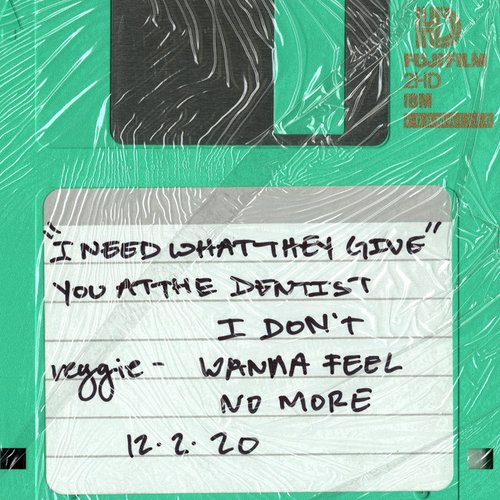 HD
FUJIFILM
2HD
IBM
"I NEED WHAT THEY GIVE"
YOU AT THE DENTIST
I DON'T
veggie - WANNA FEEL
NO MORE
12.2.20